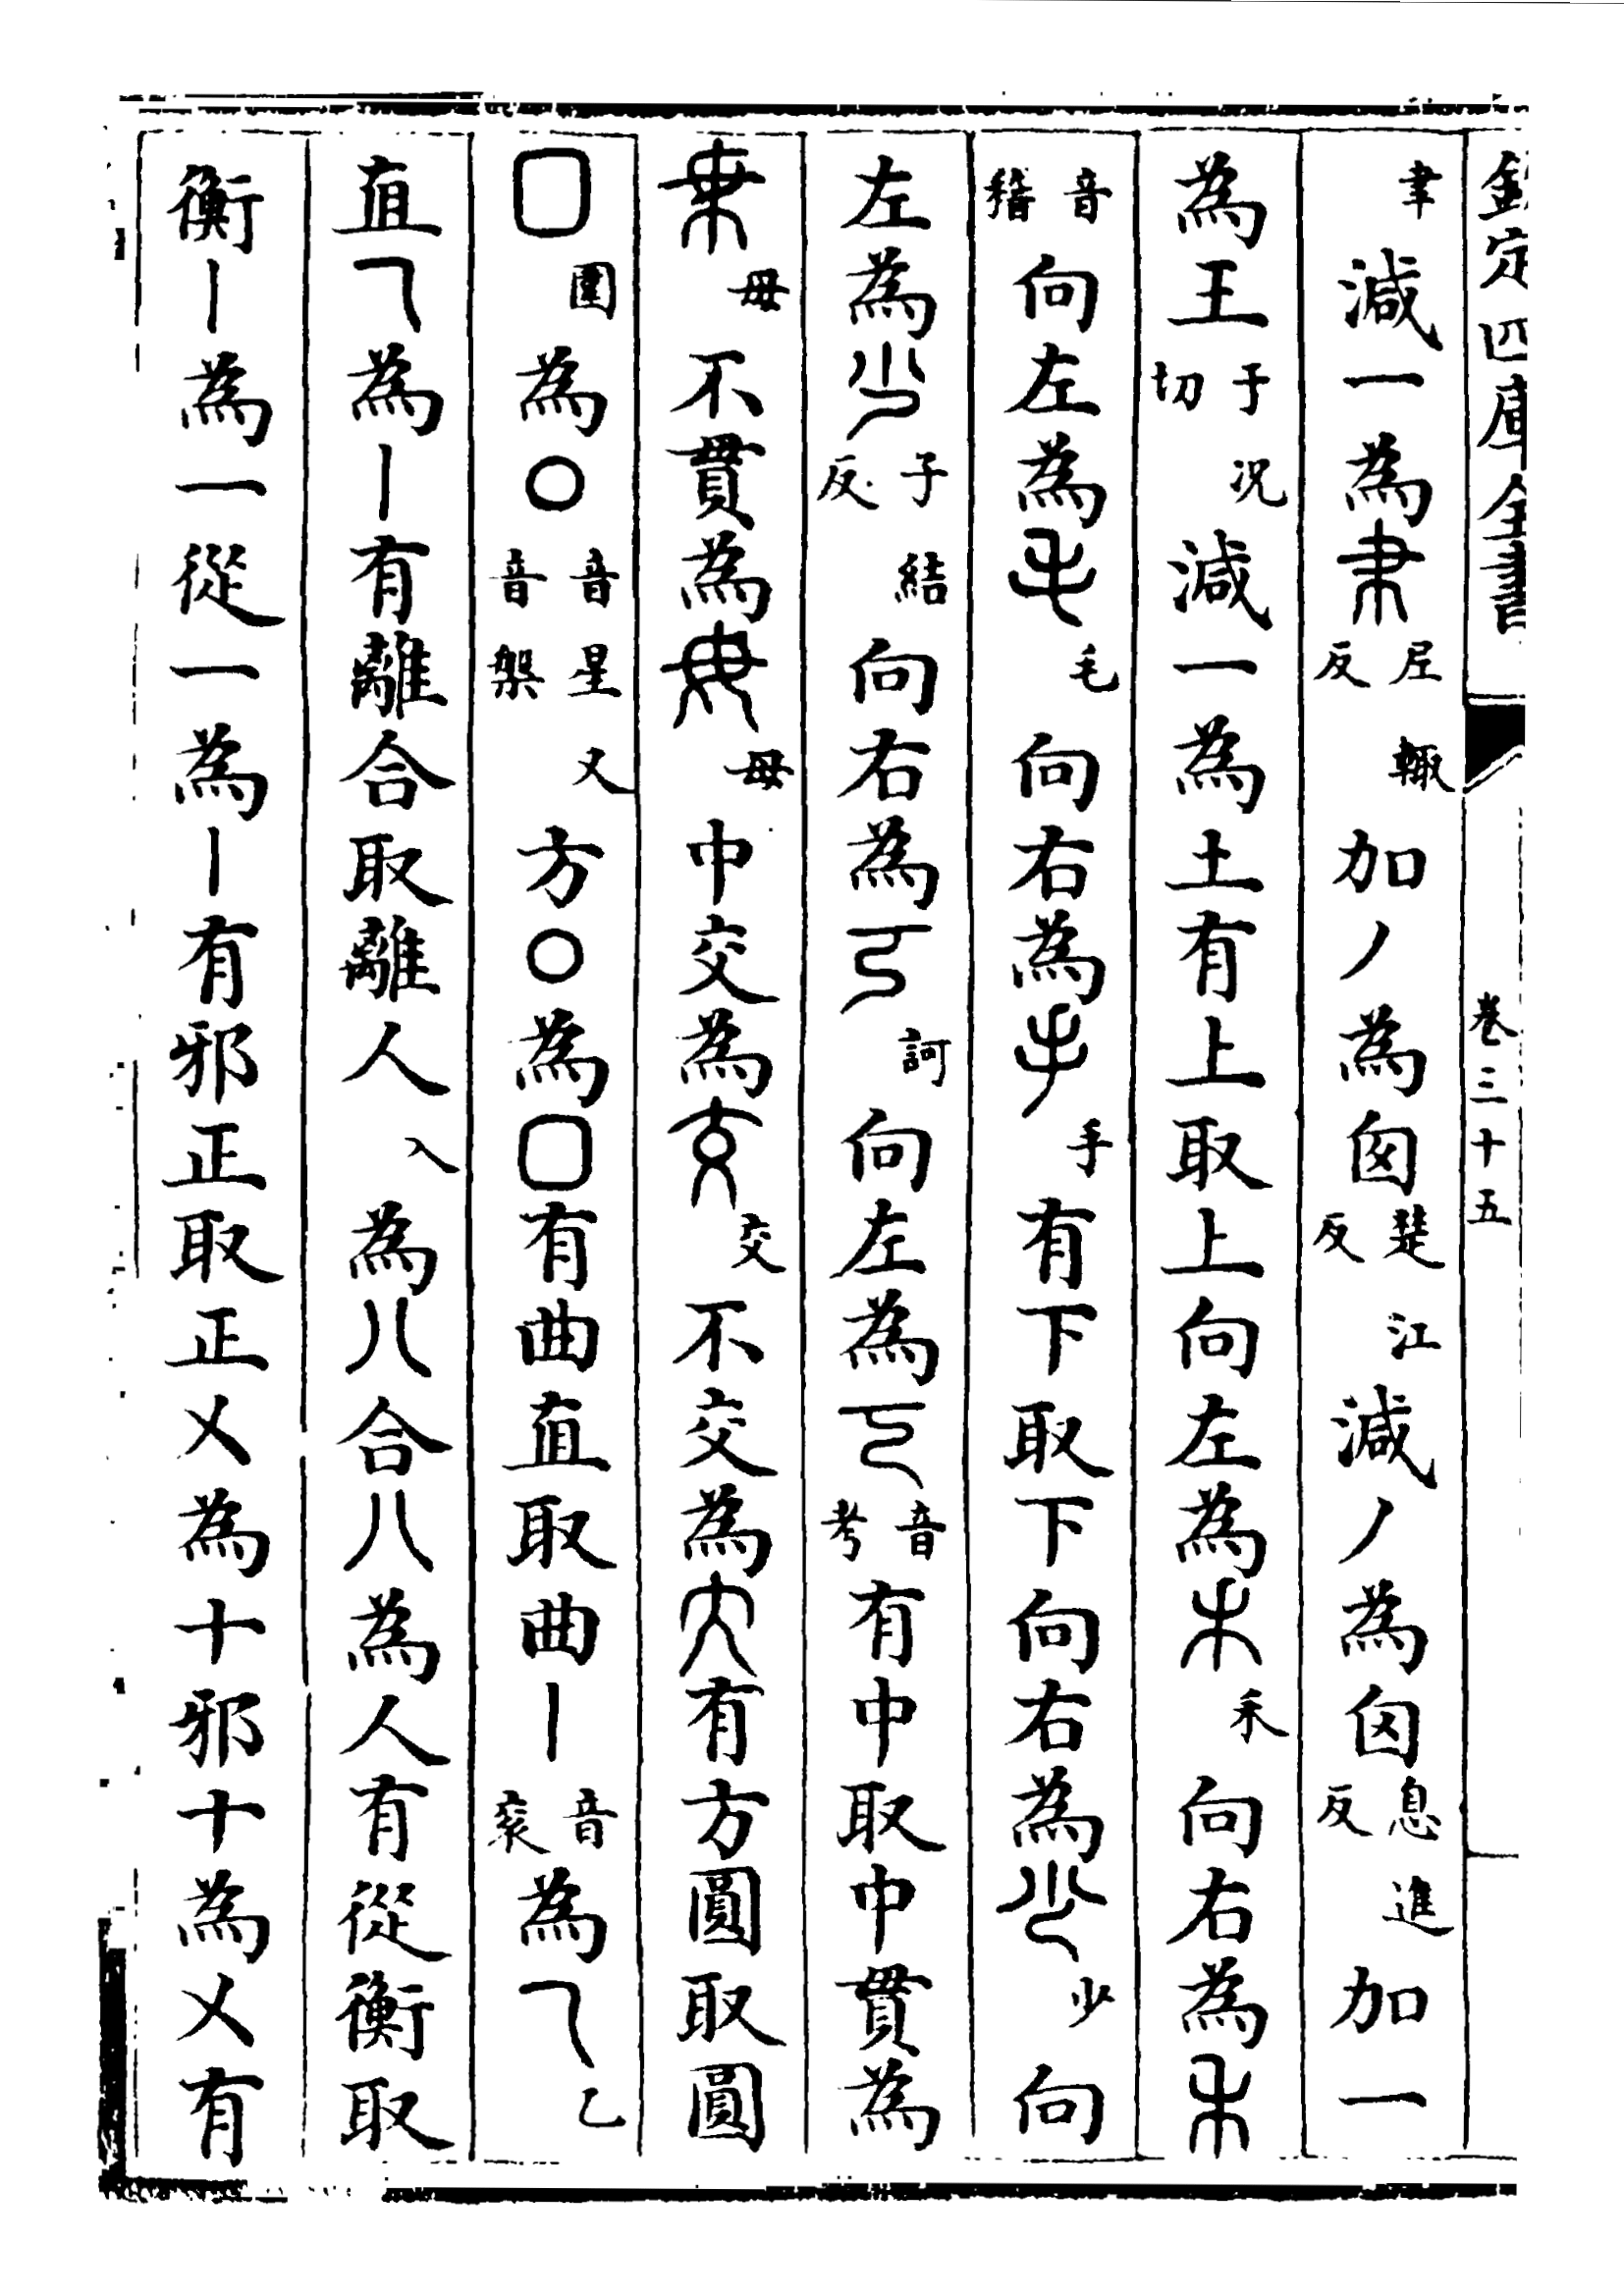 欽定四庫全書 卷三十五
聿減一為𦘒尼輒反加丿為囪楚江反減丿為囟息進反加一
為王于況切減一為土有上取上向左為禾禾向右為𥝌
音稽向左為毛毛向右為手手有下取下向右為少少向
左為𡮐子結反向右為𠀀訶向左為丂音考有中取中貫為
毋不貫為母中交為交交不交為大有方圓取圓
囗圍為〇音星又音槃方〇為囗有曲直取曲丨音衮為乁乙
直乁為丨有離合取離人入為八合八為人有從衡取
衡丨為一從一為丨有邪正取正乂為十邪十為乂有